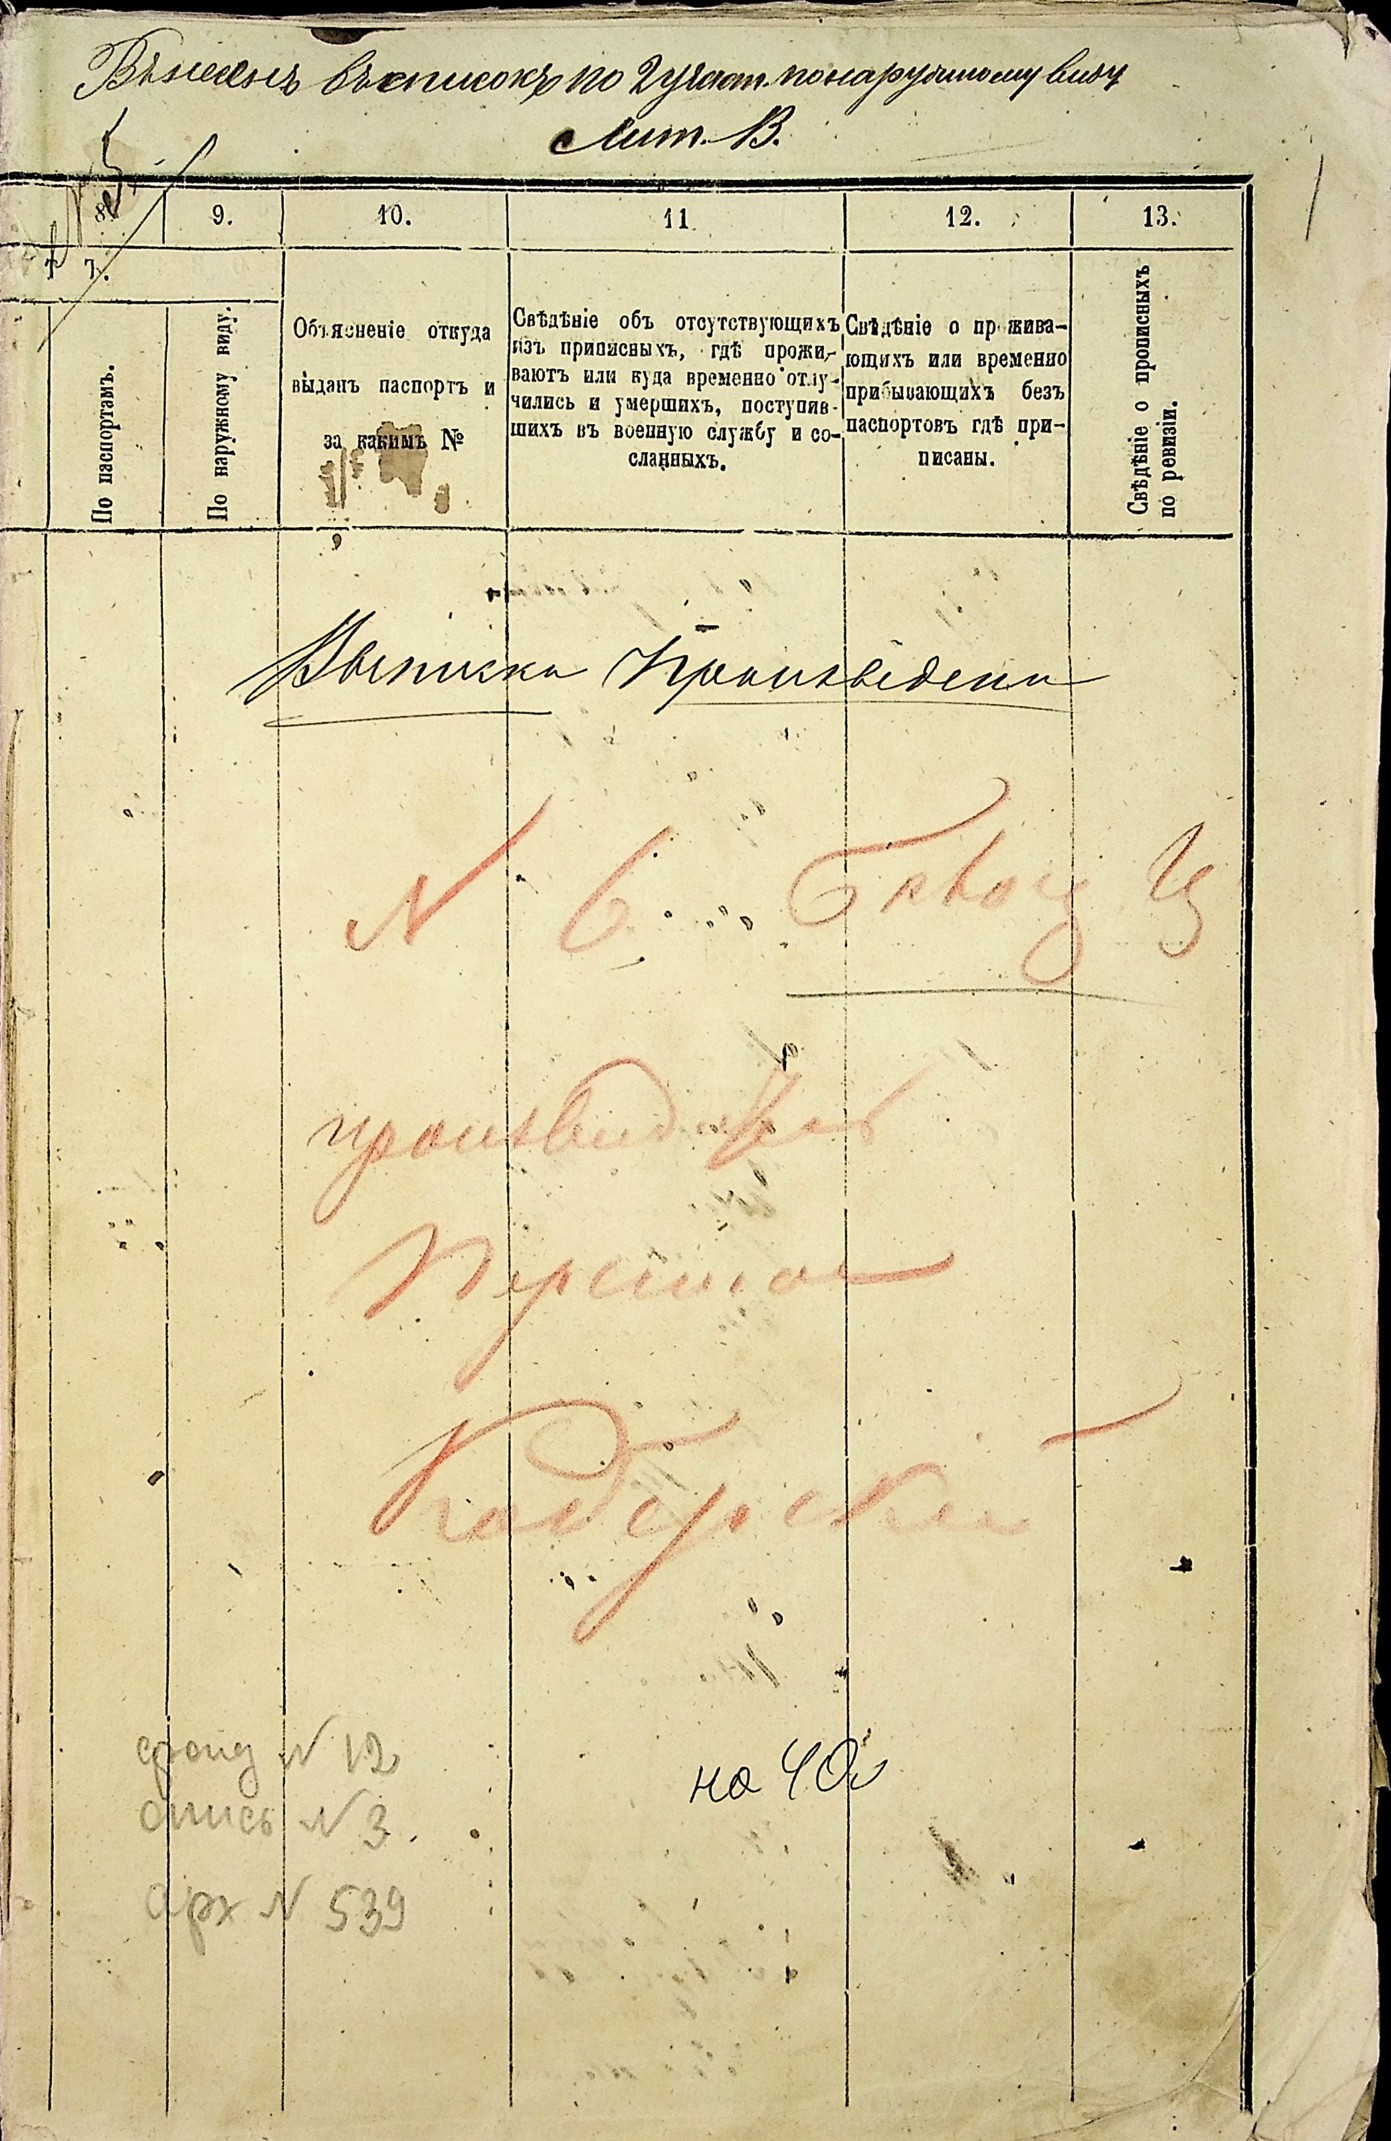 въ списокъ по 2 участ. по наружному виду
Лит. В.
8. 9. 10. 11 12. 13.
7.
По паспортамъ.
По наружному виду.
Объясненіе откуда
выданъ паспортъ и
за какимъ №
Свѣдѣніе объ отсутствующихъ
изъ приписныхъ, гдѣ прожи-
ваютъ или куда временно отлу-
чились и умершихъ, поступив-
шихъ въ военную службу и со-
сланныхъ.
Свѣдѣніе о прожива-
ющихъ или временно
прибывающихъ безъ
паспортовъ гдѣ при-
писаны.
Свѣдѣніе о прописныхъ
по ревизіи.
Выписка произведена
N 6
производилъ
фонд N 12
опись N 3
арх N 539
на 40